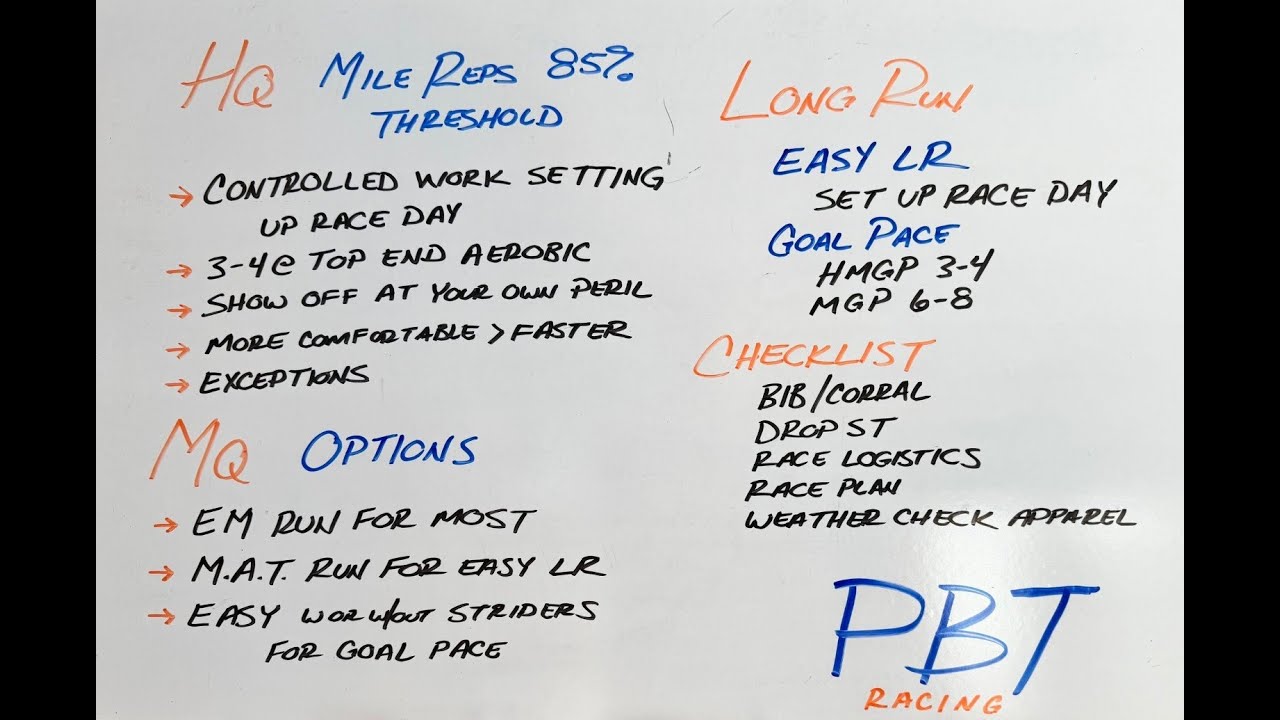 HQ MILE REPS 85%
THRESHOLD
→ CONTROLLED WORK SETTING
UP RACE DAY
→ 3-4@ TOP END AEROBIC
→ SHOW OFF AT YOUR OWN PERIL
→ MORE COMFORTABLE > FASTER
→ EXCEPTIONS
MQ OPTIONS
→ EM RUN FOR MOST
→ M.A.T. RUN FOR EASY LR
→ EASY WORK/OUT STRIDERS
FOR GOAL PACE
LONG RUN
EASY LR
SET UP RACE DAY
GOAL PACE
HMGP 3-4
MGP 6-8
CHECKLIST
BIB/CORRAL
DROP ST
RACE LOGISTICS
RACE PLAN
WEATHER CHECK APPAREL
PBT
RACING